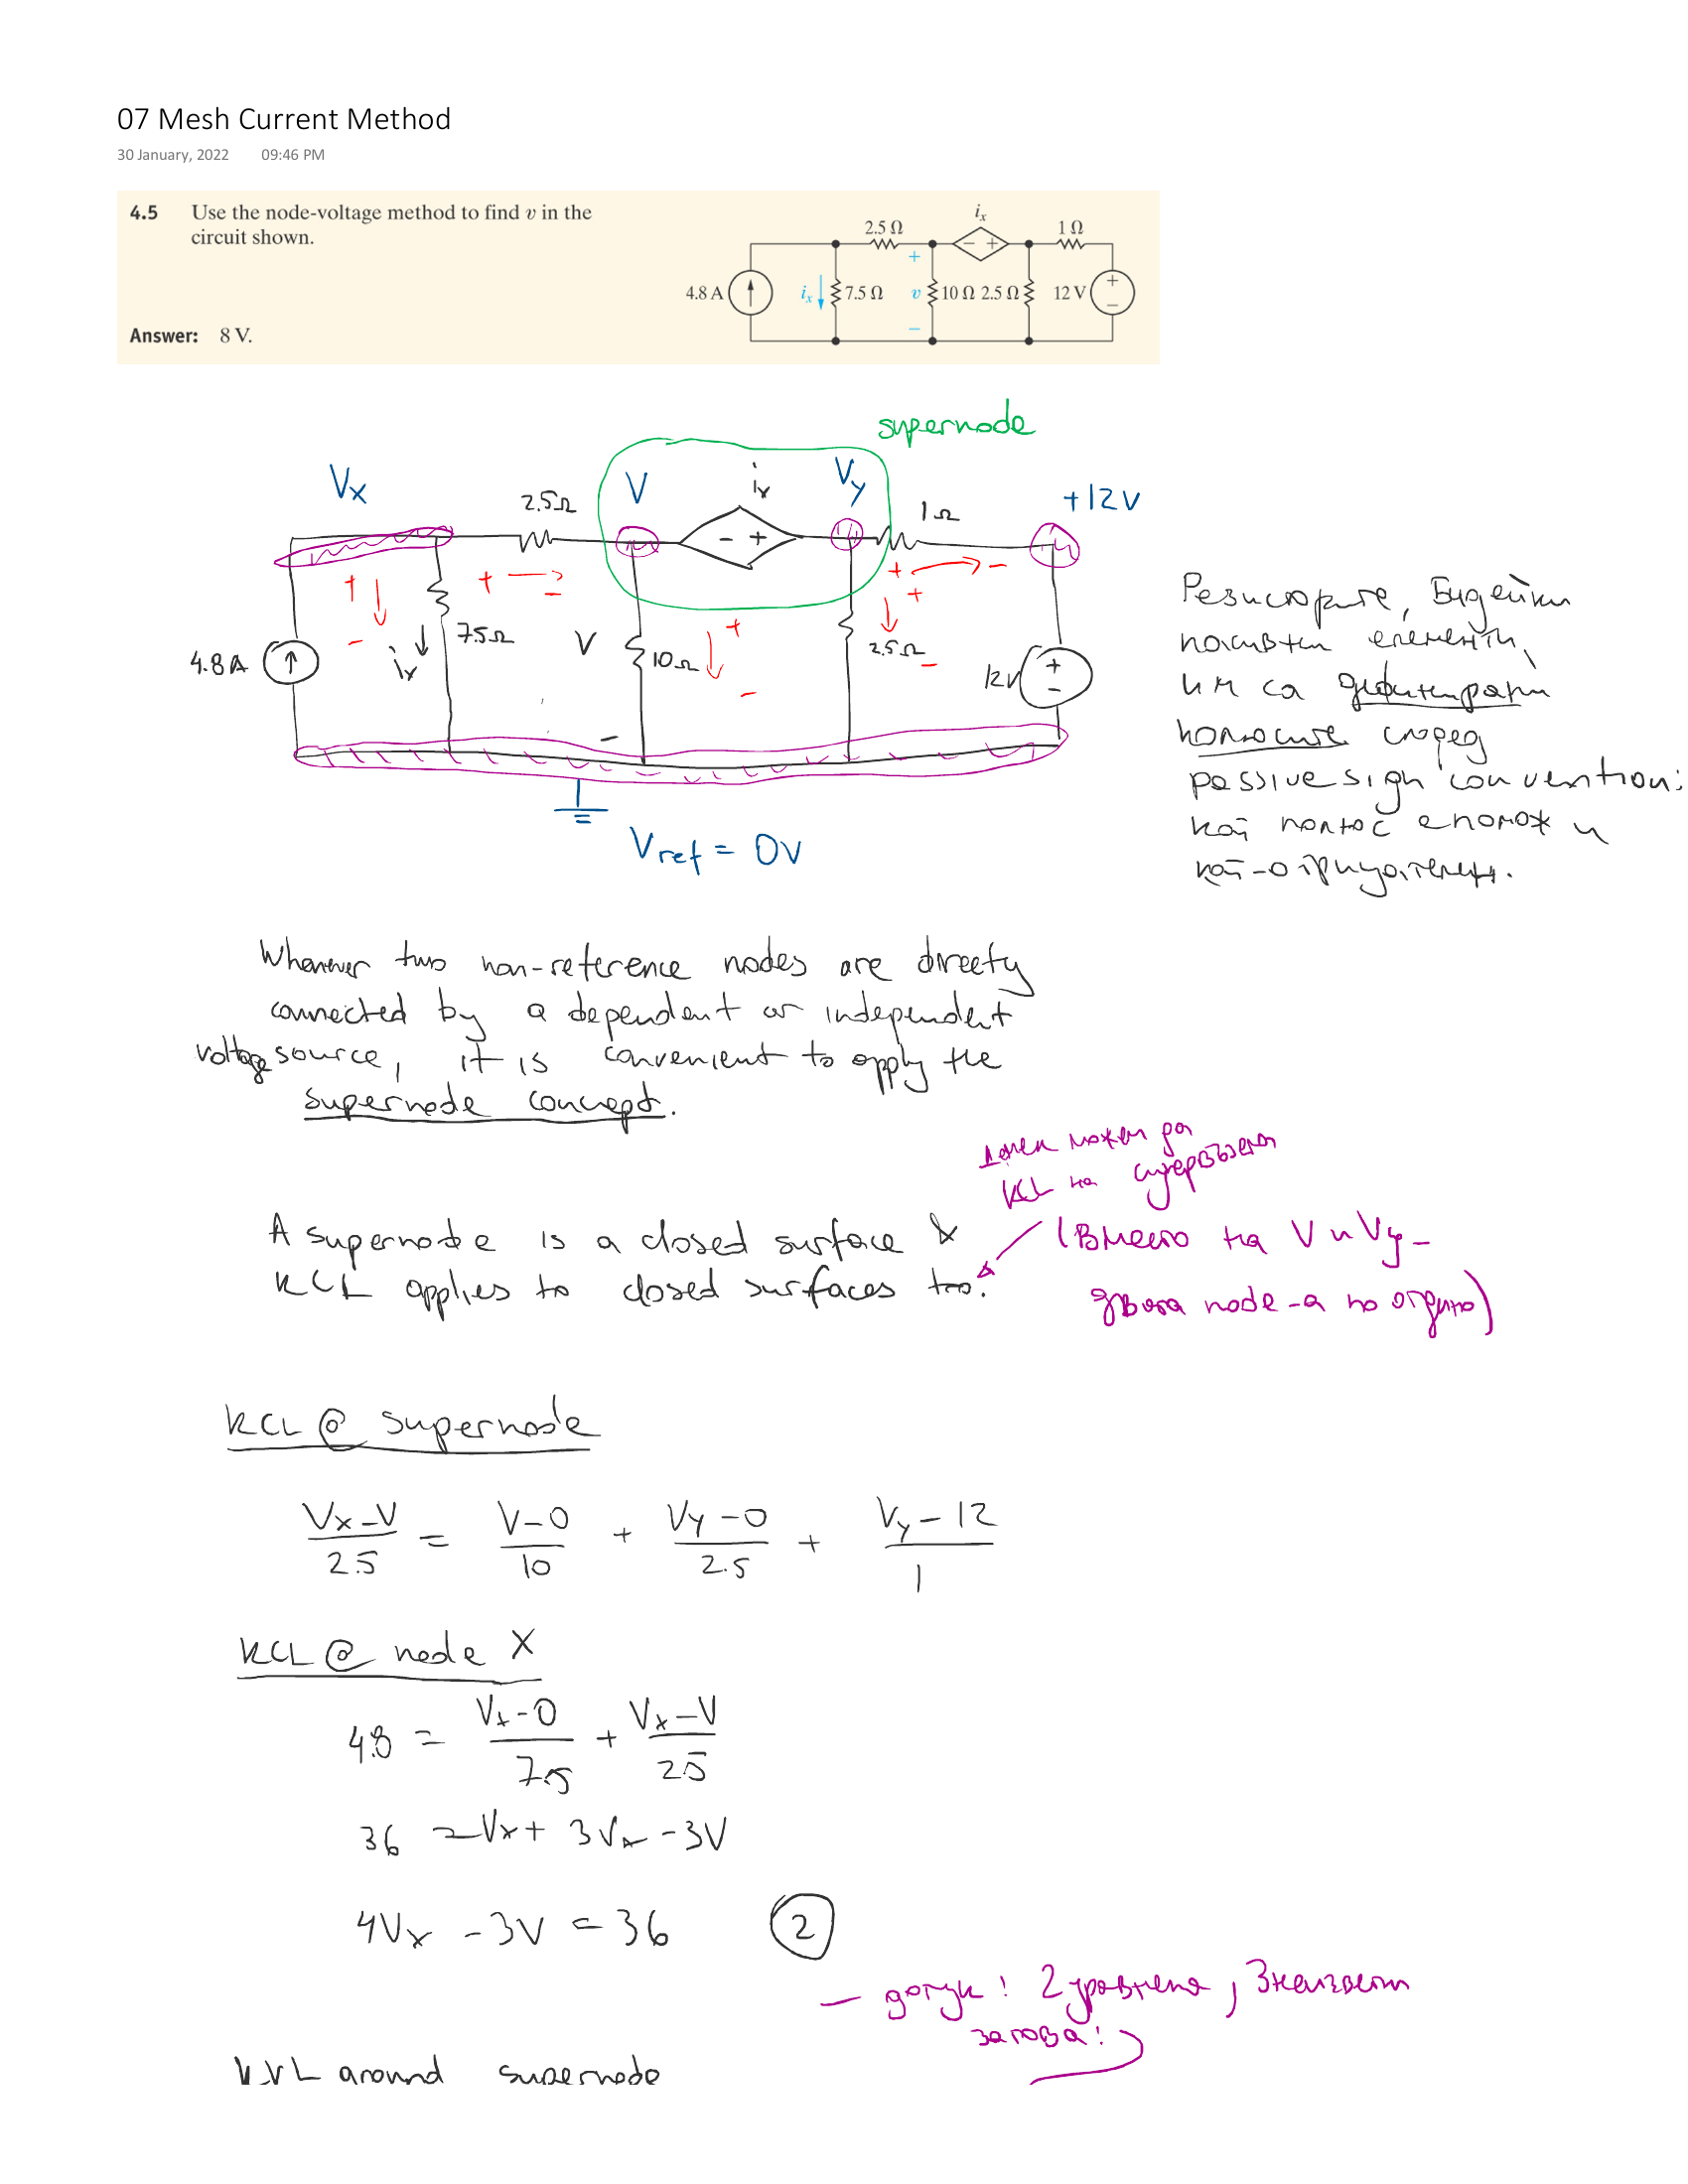 07 Mesh Current Method
30 January, 2022 09:46 PM
4.5 Use the node-voltage method to find v in the
circuit shown.
Answer: 8 V.
2.5 Ω
iₓ
1 Ω
4.8 A
iₓ
7.5 Ω
v
10 Ω
2.5 Ω
12 V
supernode
Vx
2.5Ω
V
ix
Vy
1Ω
+12V
4.8A
ix
7.5Ω
V
10Ω
2.5Ω
12V
Vref = 0V
Резисторите, бидейки
пасивни елементи,
им са дефинирани
полюсите според
passive sign convention:
кой полюс е полож и
кой-отрицателен.
Whenever two non-reference nodes are directly
connected by a dependent or independent
voltage source, it is convenient to apply the
supernode concept.
KCL на супервъзел
A supernode is a closed surface &
KCL applies to closed surfaces too.
(Вместо на V и Vy-
двата node-а по отделно)
KCL @ supernode
Vx-V/2.5 = V-0/10 + Vy-0/2.5 + Vy-12/1
KCL @ node X
4.8 = Vx-0/7.5 + Vx-V/2.5
36 = Vx + 3Vx - 3V
4Vx - 3V = 36 2
- дотук! 2 уравнения, 3 неизвестни
засега!
KVL around supernode